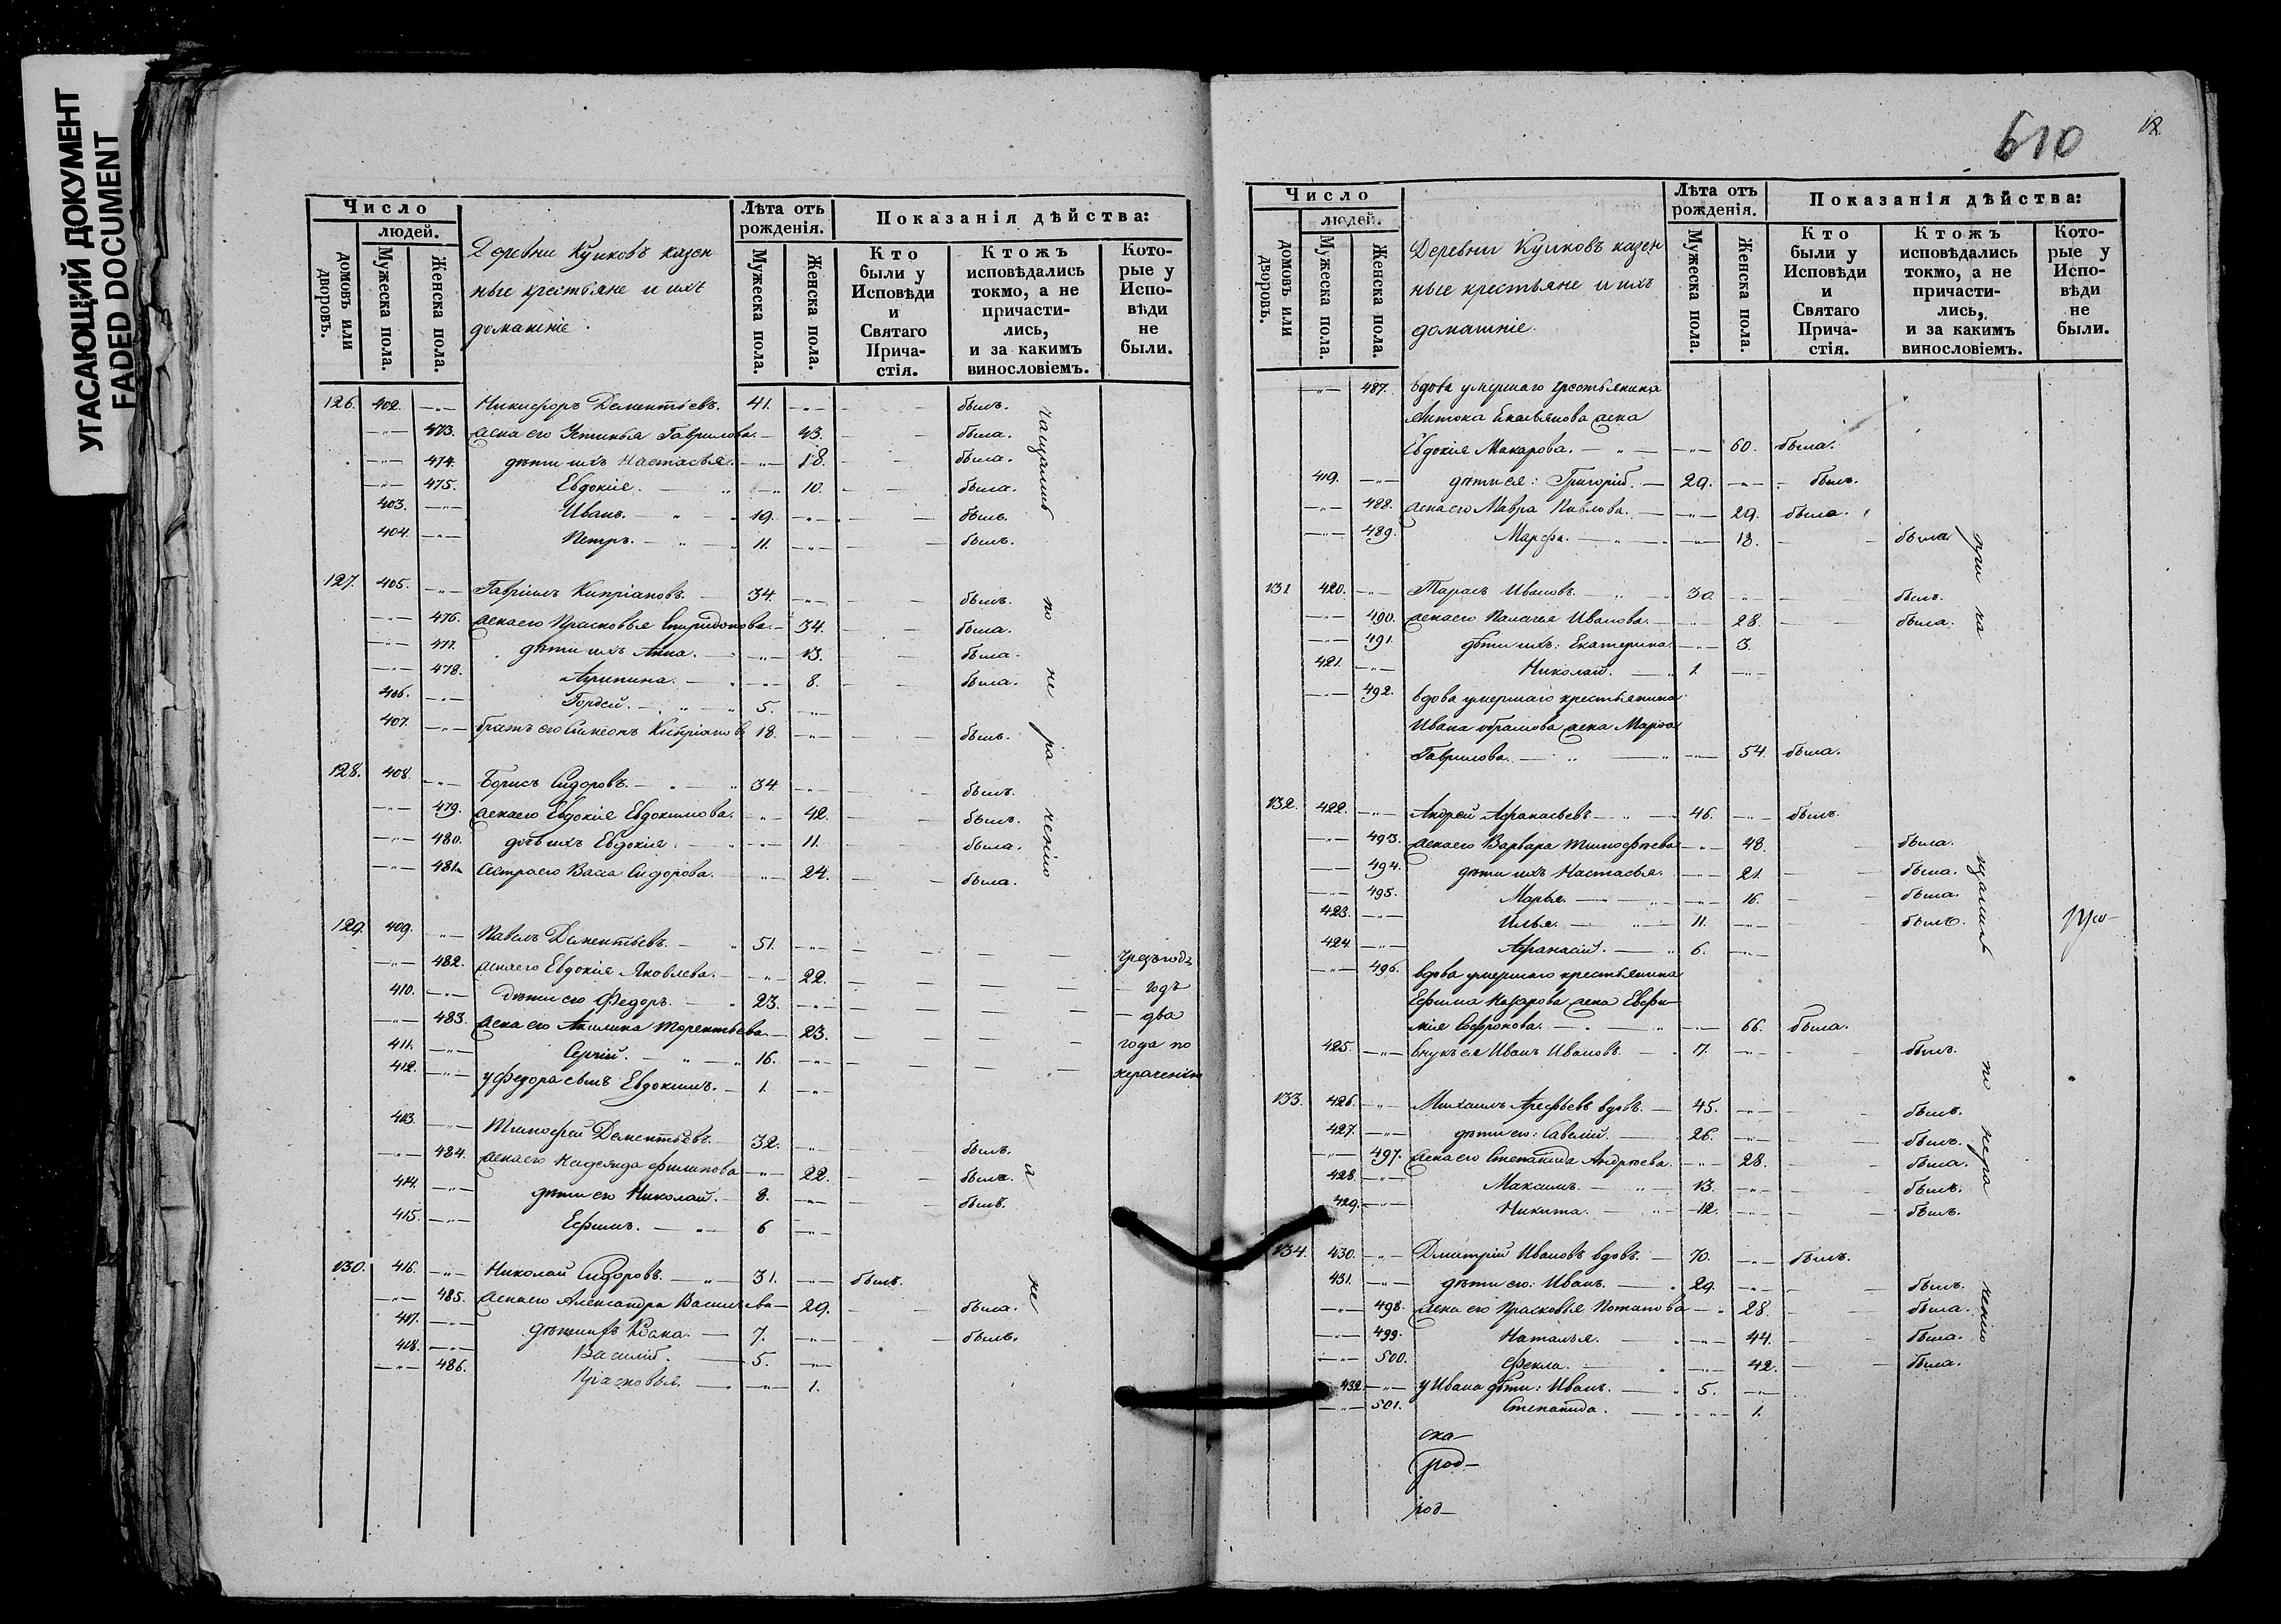 УГАСАЮЩИЙ ДОКУМЕНТ
FADED DOCUMENT
Число
людей.
домовъ или дворовъ.
Мужеска пола.
Женска пола.
Деревни Куликовъ казен
ные крестьяне и ихъ
домашніе.
Лѣта отъ рожденія.
Мужеска пола.
Женска пола.
Показанія дѣйства:
Кто были у Исповѣди и Святаго Прича-стія.
Ктожъ исповѣдались токмо, а не причасти-лись, и за какимъ винословіемъ.
Кото-рые у Испо-вѣди не были.
126. 402. —„— Никифоръ Дементьевъ. 41. —„— былъ.
—„— 473. жена его Устинья Гаврилова. — 43. была.
—„— 474. дѣти ихъ Настасья. —„— 18. была.
—„— 475. Евдокія. —„— 10. была.
403. —„— Иванъ. 19. —„— былъ.
404. —„— Петръ. 11. —„— былъ.
127. 405. —„— Гавріилъ Кипріановъ. 34. —„— былъ.
—„— 476. жена его Прасковья Спиридонова. — 34. была.
—„— 477. дѣти ихъ Анна. —„— 13. была.
—„— 478. Агрипина. —„— 8. была.
406. —„— Гордей. 5. —„—
407. —„— братъ его Симеонъ Кипріановъ 18. —„— былъ.
128. 408. —„— Борисъ Сидоровъ. 34. —„— былъ.
—„— 479. жена его Евдокія Евдокимова. —„— 42. былъ.
—„— 480. дочь ихъ Евдокія. —„— 11. была.
—„— 481. сестра его Васса Сидорова. —„— 24. была.
129. 409. —„— Павелъ Дементьевъ. 51. —„— чрезъ годъ
—„— 482. жена его Евдокія Яковлева. —„— 22. годъ
410. —„— дѣти его Федоръ. 23. —„— два
—„— 483. жена его Акилина Терентьева — 23. года по
411. —„— Сергій. 16. —„— нераченію
412. —„— у Федора сынъ Евдокимъ. 1. —„—
413. —„— Тимофей Дементьевъ. 32. —„— былъ.
—„— 484. жена его Надежда Филипова —„— 22. была.
414. —„— дѣти его Николай. 8. —„— былъ.
415. —„— Ефимъ. 6 —„—
130. 416. —„— Николай Сидоровъ. 31. —„— былъ.
—„— 485. жена его Александра Васильева — 29. была.
417. —„— дѣти ихъ 7. —„— былъ.
418. —„— Василій. 5. —„—
—„— 486. Прасковья. —„— 1.
по не ра ченію
610
12.
Число
людей.
домовъ или дворовъ.
Мужеска пола.
Женска пола.
Деревни Куликовъ казен
ные крестьяне и ихъ
домашніе.
Лѣта отъ рожденія.
Мужеска пола.
Женска пола.
Показанія дѣйства:
Кто были у Исповѣди и Святаго Прича-стія.
Ктожъ исповѣдались токмо, а не причасти-лись, и за какимъ винословіемъ.
Кото-рые у Испо-вѣди не были.
—„— 487. вдова умершаго крестьянина
Антона Емельянова жена
Евдокія Макарова. —„— 60. была.
419. —„— дѣти ея: Григорій. 29. —„— былъ.
—„— 488. жена его Мавра Павлова. —„— 29. была.
—„— 489. Марфа. —„— 18. была
131 420. —„— Тарасъ Ивановъ. 30. —„— былъ.
—„— 490. жена его Палагея Иванова. —„— 28. была.
—„— 491. дѣти ихъ: Екатерина. —„— 3.
421. —„— Николай. 1. —„—
—„— 492. вдова умершаго крестьянина
Ивана Абрамова жена Марфа
Гаврилова. —„— 54. была.
132. 422. —„— Андрей Афанасьевъ 46. —„— былъ.
—„— 493. жена его Варвара Тимофѣева —„— 48. была.
—„— 494. дѣти ихъ Настасья. —„— 21. была.
—„— 495. Марья. —„— 16. была.
423. —„— Илья. 11. —„— былъ.
424. —„— Афанасій. 6. —„—
—„— 496. вдова умершаго крестьянина
Ефима Назарова жена Евфи-
мія Софронова. —„— 66. была.
425. —„— внукъ ея Иванъ Ивановъ. 17. —„— былъ.
133. 426. —„— Михаилъ Арефьевъ вдовъ. 45. —„— былъ.
427. —„— дѣти его: Савелій. 26. —„— былъ.
—„— 497. жена его Степанида Андрѣева. —„— 28. была.
428. —„— Максимъ. 13. —„— былъ.
429. —„— Никита. 12. —„— былъ.
134. 430. —„— Дмитрій Ивановъ вдовъ. 70. —„— былъ.
431. —„— дѣти его: Иванъ. 29. —„— былъ.
—„— 498. жена его Прасковья Потапова —„— 28. была.
—„— 499. Наталья. —„— 44. была.
—„— 500. Фекла. —„— 42. была.
432. —„— у Ивана дѣти: Иванъ. 5. —„—
—„— 501. Степанида. —„— 1.
по нера ченію
ска—
род—
род—